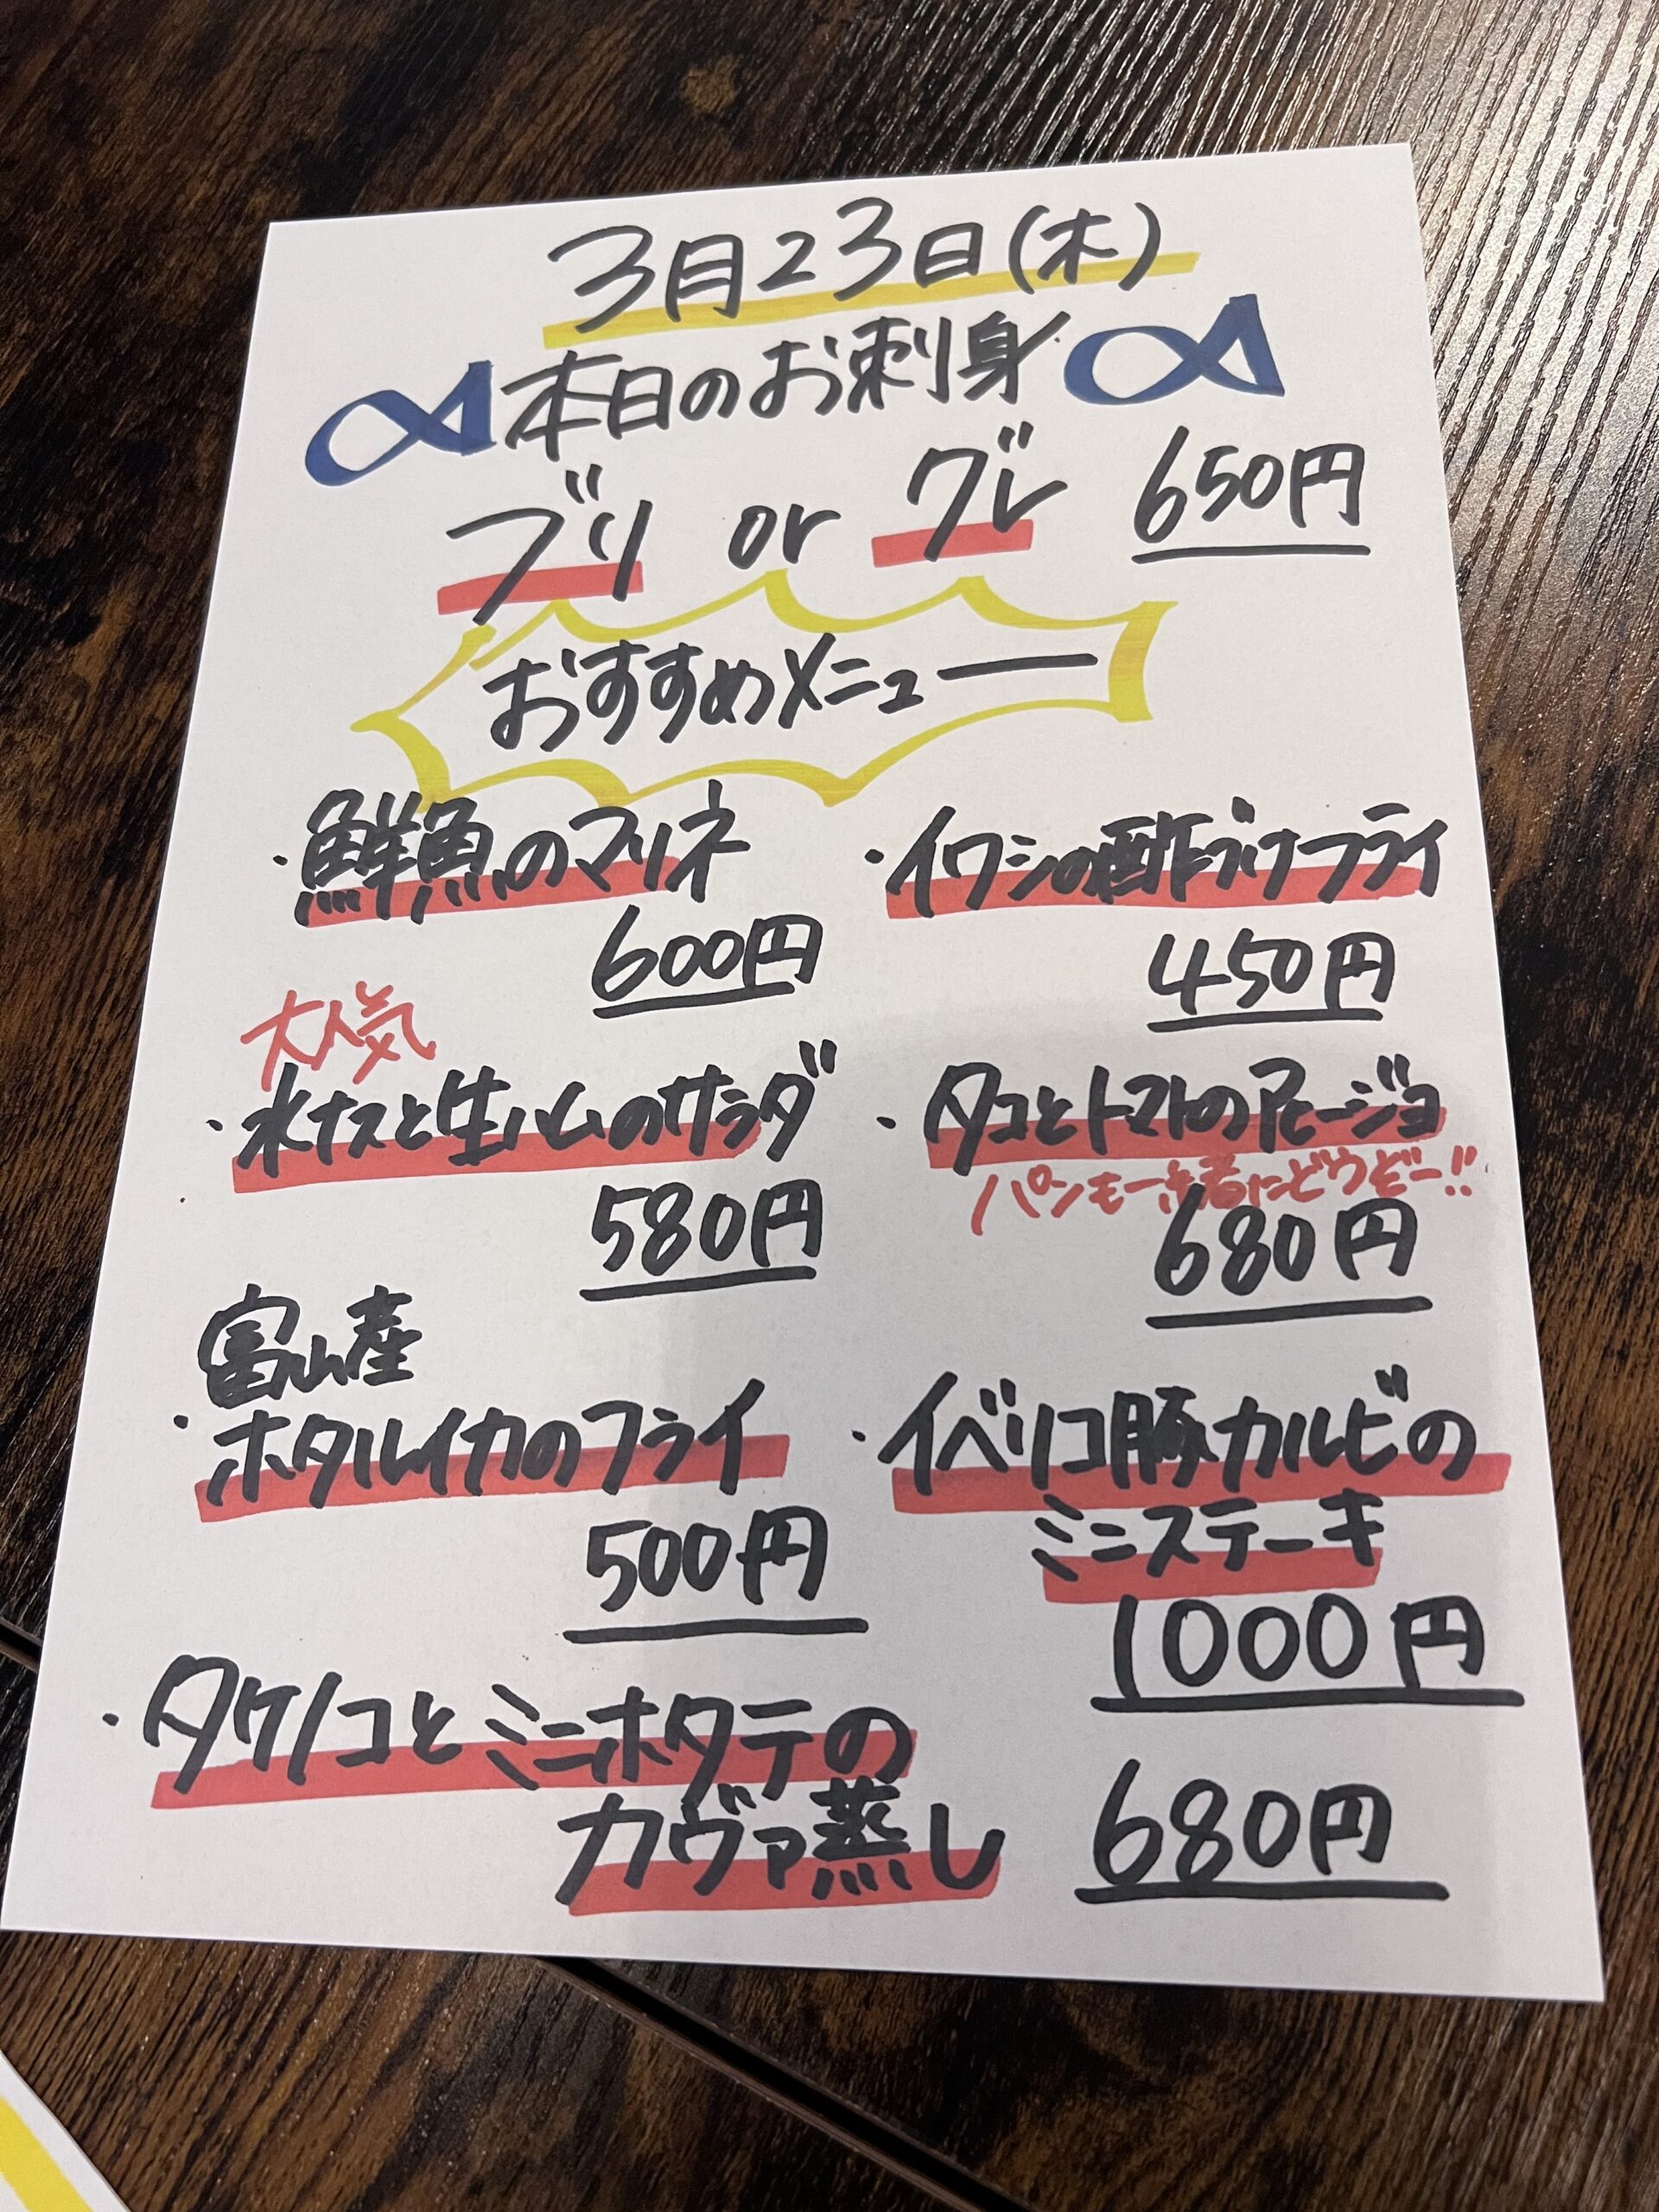 3月23日(木)
本日のお刺身
ブリ or グレ 650円
おすすめメニュー
・鮮魚のマリネ
600円
・イワシの酢づけフライ
450円
大人気
・水ナスと生ハムのサラダ
580円
・タコとトマトのアヒージョ
パンも一緒にどうぞー!!
680円
富山産
・ホタルイカのフライ
500円
・イベリコ豚カルビの
ミニステーキ
1000円
・タケノコとミニホタテの
カヴァ蒸し 680円